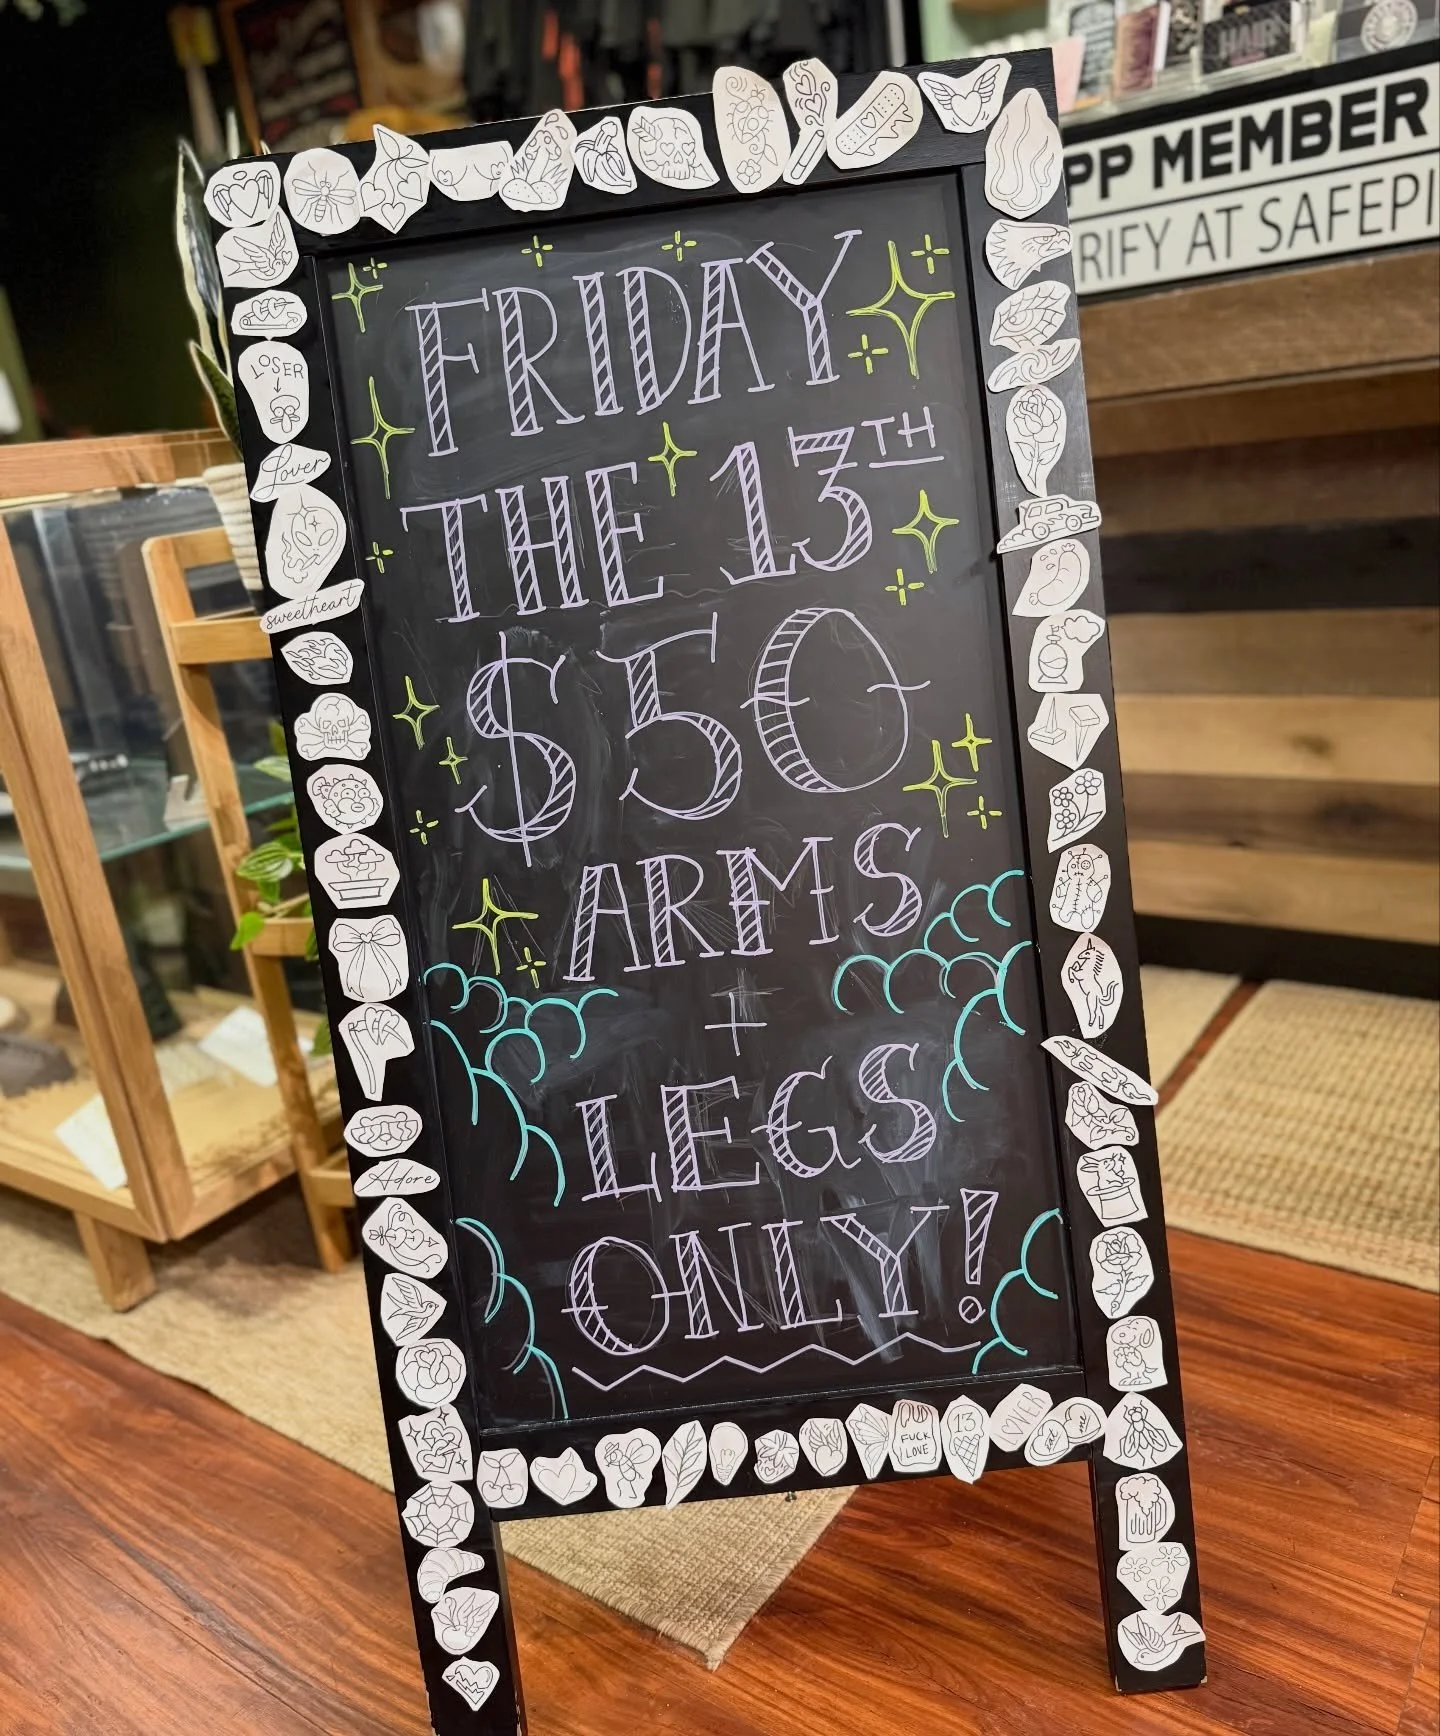 FRIDAY
THE 13TH
$50
ARMS
+
LEGS
ONLY!
LOSER
Lover
sweetheart
Adore
FUCK
LOVE
13
LOVER
eat
me
PP MEMBER
RIFY AT SAFEPI
HAIR